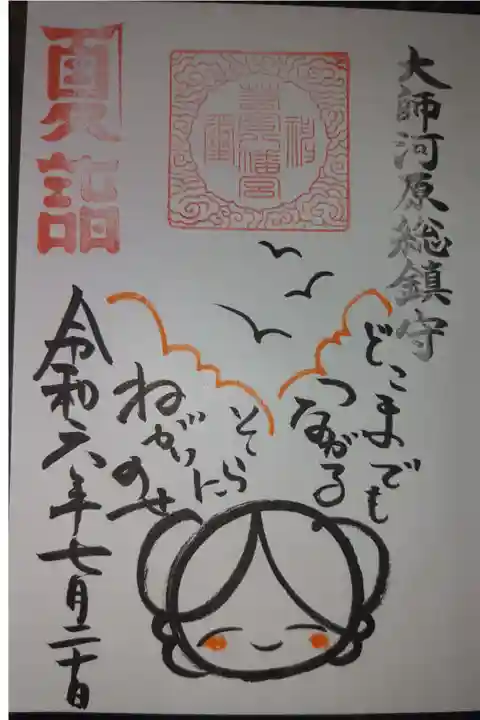 大師河原総鎮守
どこまでも
つながる
そらに
ねがいのせ
令和六年七月二十日
夏詣